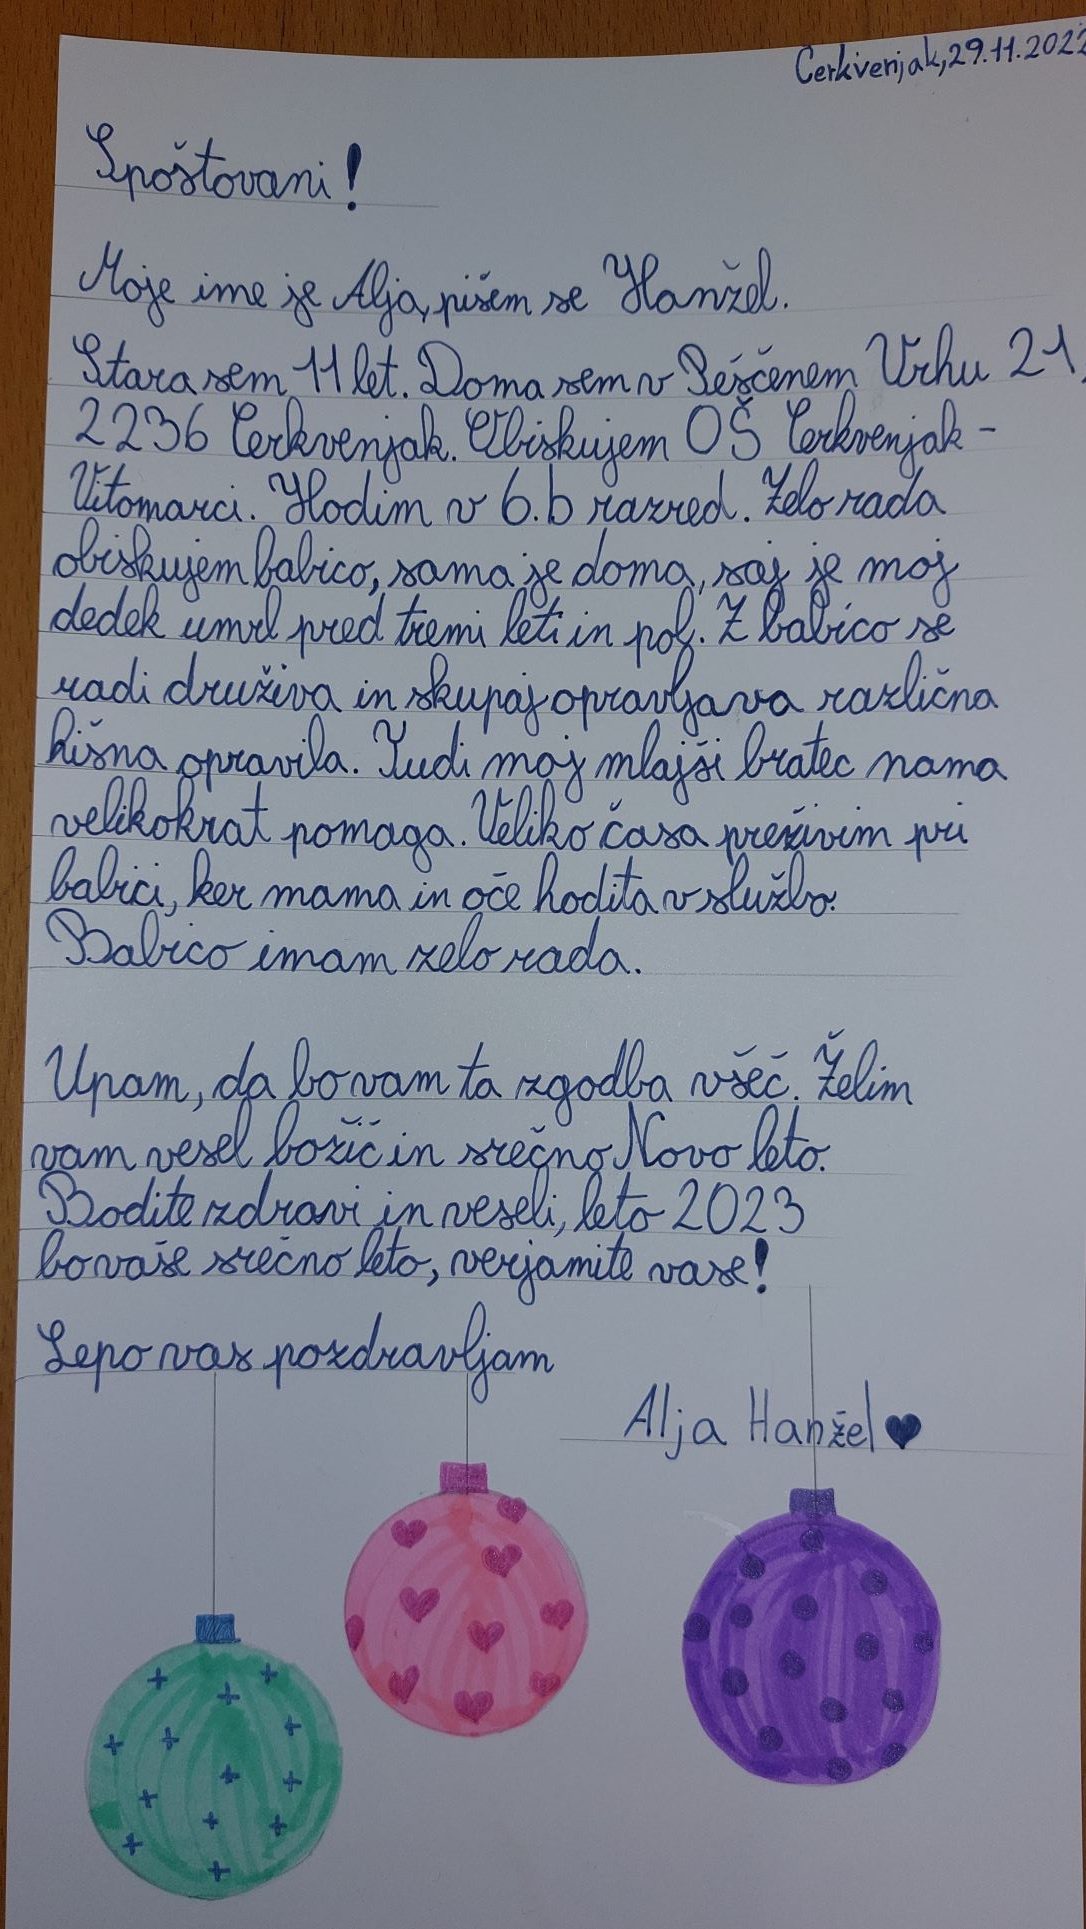 Cerkvenjak, 29.11.2022
Spoštovani!
Moje ime je Alja, pišem se Hanžel.
Stara sem 11 let. Doma sem v Peščenem Vrhu 21,
2236 Cerkvenjak. Obiskujem OŠ Cerkvenjak -
Vitomarci. Hodim v 6.b razred. Zelo rada
obiskujem babico, sama je doma, saj je moj
dedek umrl pred tremi leti in pol. Z babico se
radi druživa in skupaj opravljava različna
hišna opravila. Tudi moj mlajši bratec nama
velikokrat pomaga. Veliko časa preživim pri
babici, ker mama in oče hodita v službo.
Babico imam zelo rada.
Upam, da bo vam ta zgodba všeč. Želim
vam vesel božič in srečno Novo leto.
Bodite zdravi in veseli, leto 2023
bo vaše srečno leto, verjamite vase!
Lepo vas pozdravljam
Alja Hanžel